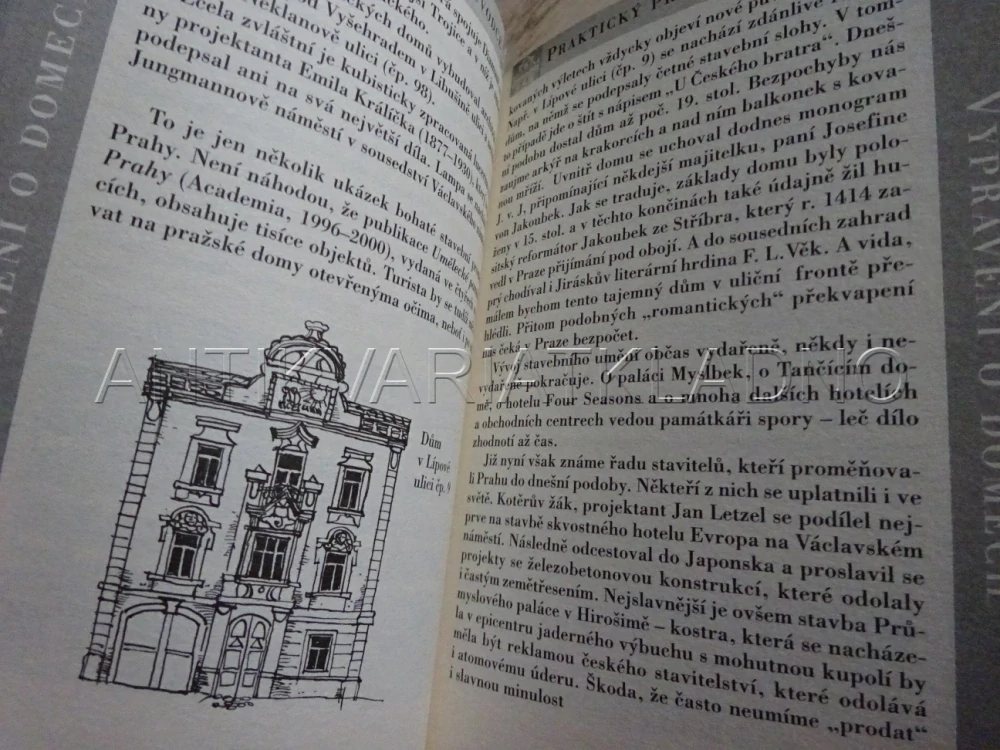 VYPRÁVĚNÍ O DOMECH
á spojuje
Trojice a v
ného.
ckých domů vybudoval
od Vyšehradem v Libušině ulici
Neklanově ulici (čp. 98).
Zcela zvláštní je kubisticky zpracovaná
ny projektanta Emila Králíčka (1877–1930), kte
podepsal ani na svá největší díla. Lampa se na
Jungmannově náměstí v sousedství Václavské
To je jen několik ukázek bohaté stavební
Prahy. Není náhodou, že publikace Umělecké
Prahy (Academia, 1996–2000), vydaná ve čtyřech
cích, obsahuje tisíce objektů. Turista by se tudíž
vat na pražské domy otevřenýma očima, neboť i
Dům
v Lípové
ulici čp. 9
PRAKTICKÝ
kovaných výletech vždycky objeví nové
Např. v Lípové ulici (čp. 9) se nachází zdánlivě
dům, na němž se podepsaly četné stavební slohy. V tom-
to případě jde o štít s nápisem „U Českého bratra“. Dneš-
ní podobu dostal dům až poč. 19. stol. Bezpochyby nás
zaujme arkýř na krakorcích a nad ním balkonek s kova-
nou mříží. Uvnitř domu se uchoval dodnes monogram
J. v. J, připomínající někdejší majitelku, paní Josefine
von Jakoubek. Jak se traduje, základy domu byly polo-
ženy v 15. stol. a v těchto končinách také údajně žil hu-
sitský reformátor Jakoubek ze Stříbra, který r. 1414 za-
vedl v Praze přijímání pod obojí. A do sousedních zahrad
prý chodíval i Jiráskův literární hrdina F. L. Věk. A vida,
málem bychom tento tajemný dům v uliční frontě pře-
hlédli. Přitom podobných „romantických“ překvapení
nás čeká v Praze bezpočet.
Vývoj stavebního umění občas vydařeně, někdy i ne-
vydařeně pokračuje. O paláci Myslbek, o Tančícím do-
mě, o hotelu Four Seasons a o mnoha dalších hotelích
a obchodních centrech vedou památkáři spory – leč dílo
zhodnotí až čas.
Již nyní však známe řadu stavitelů, kteří proměňova-
li Prahu do dnešní podoby. Někteří z nich se uplatnili i ve
světě. Kotěrův žák, projektant Jan Letzel se podílel nej-
prve na stavbě skvostného hotelu Evropa na Václavském
náměstí. Následně odcestoval do Japonska a proslavil se
projekty se železobetonovou konstrukcí, které odolaly
i častým zemětřesením. Nejslavnější je ovšem stavba Prů-
myslového paláce v Hirošimě – kostra, která se nacháze-
la v epicentru jaderného výbuchu s mohutnou kupolí by
měla být reklamou českého stavitelství, které odolává
i atomovému úderu. Škoda, že často neumíme „prodat“
i slavnou minulost
VYPRÁVĚNÍ O DOMECH
ANTIKVARIAT KLADNO